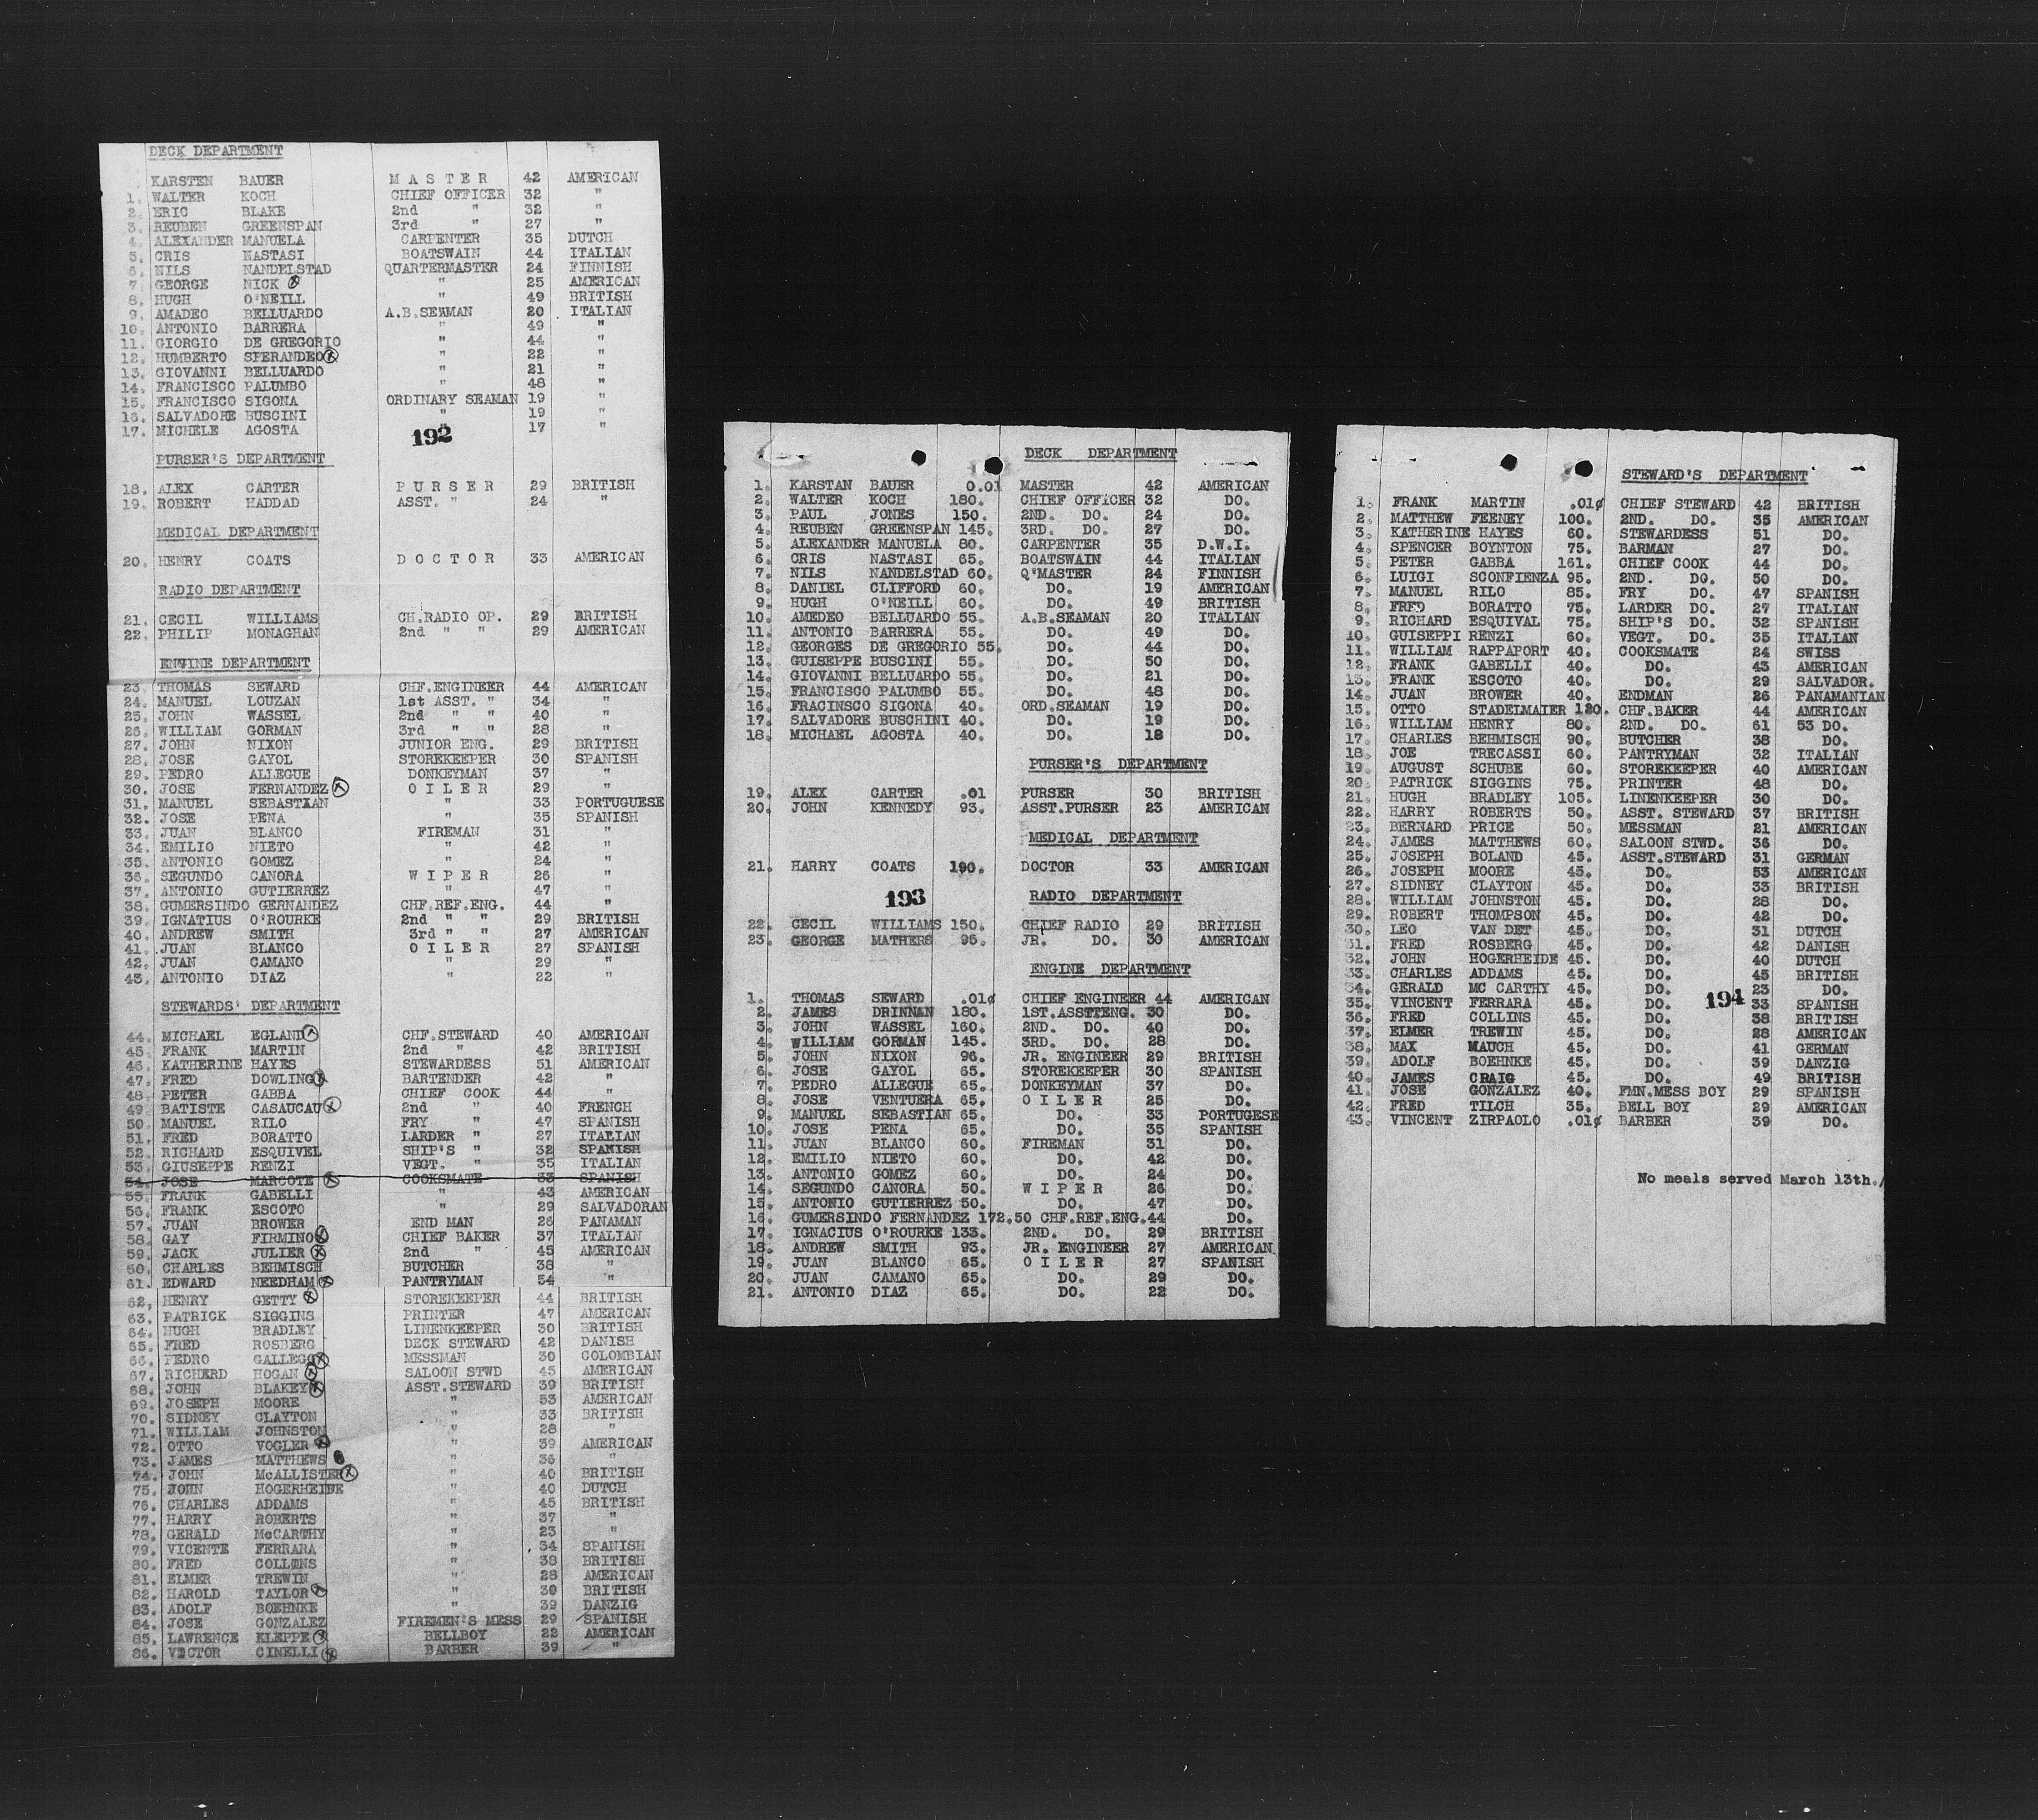 DECK DEPARTMENT
KARSTEN BAUER M A S T E R 42 AMERICAN
1. WALTER KOCH CHIEF OFFICER 32 "
2. ERIC BLAKE 2nd " 32 "
3. REUBEN GREENSPAN 3rd " 27 "
4. ALEXANDER MANUELA CARPENTER 35 DUTCH
5. CRIS NASTASI BOATSWAIN 44 ITALIAN
6. NILS NANDELSTAD QUARTERMASTER 24 FINNISH
7. GEORGE NICK " 25 AMERICAN
8. HUGH O'NEILL " 49 BRITISH
9. AMADEO BELLUARDO A.B.SEAMAN 20 ITALIAN
10. ANTONIO BARRERA " 49 "
11. GIORGIO DE GREGORIO " 44 "
12. HUMBERTO SPERANDEO " 22 "
13. GIOVANNI BELLUARDO " 21 "
14. FRANCISCO PALUMBO " 48 "
15. FRANCISCO SIGONA ORDINARY SEAMAN 19 "
16. SALVADORE BUSCINI " 19 "
17. MICHELE AGOSTA " 17 "
192
PURSER'S DEPARTMENT
18. ALEX CARTER P U R S E R 29 BRITISH
19. ROBERT HADDAD ASST. " 24 "
MEDICAL DEPARTMENT
20. HENRY COATS D O C T O R 33 AMERICAN
RADIO DEPARTMENT
21. CECIL WILLIAMS CH.RADIO OP. 29 BRITISH
22. PHILIP MONAGHAN 2nd " " 29 AMERICAN
ENGINE DEPARTMENT
23. THOMAS SEWARD CHF.ENGINEER 44 AMERICAN
24. MANUEL LOUZAN 1st ASST. " 34 "
25. JOHN WASSEL 2nd " " 40 "
26. WILLIAM GORMAN 3rd " " 28 "
27. JOHN NIXON JUNIOR ENG. 29 BRITISH
28. JOSE GAYOL STOREKEEPER 30 SPANISH
29. PEDRO ALLEGUE DONKEYMAN 37 "
30. JOSE FERNANDEZ O I L E R 29 "
31. MANUEL SEBASTIAN " 33 PORTUGUESE
32. JOSE PENA " 35 SPANISH
33. JUAN BLANCO FIREMAN 31 "
34. EMILIO NIETO " 42 "
35. ANTONIO GOMEZ " 24 "
36. SEGUNDO CANORA W I P E R 26 "
37. ANTONIO GUTIERREZ " 47 "
38. GUMERSINDO GERNANDEZ CHF.REF.ENG. 44 "
39. IGNATIUS O'ROURKE 2nd " " 29 BRITISH
40. ANDREW SMITH 3rd " " 27 AMERICAN
41. JUAN BLANCO O I L E R 27 SPANISH
42. JUAN CAMANO " 29 "
43. ANTONIO DIAZ " 22 "
STEWARDS' DEPARTMENT
44. MICHAEL EGLAND CHF.STEWARD 40 AMERICAN
45. FRANK MARTIN 2nd " 42 BRITISH
46. KATHERINE HAYES STEWARDESS 51 AMERICAN
47. FRED DOWLING BARTENDER 42 "
48. PETER GABBA CHIEF COOK 44 "
49. BATISTE CASAUCAU 2nd " 40 FRENCH
50. MANUEL RILO FRY " 47 SPANISH
51. FRED BORATTO LARDER " 27 ITALIAN
52. RICHARD ESQUIVEL SHIP'S " 32 SPANISH
53. GIUSEPPE RENZI VEGT. " 35 ITALIAN
54. JOSE MARCOTE COOKSMATE 33 SPANISH
55. FRANK GABELLI " 43 AMERICAN
56. FRANK ESCOTO " 29 SALVADORAN
57. JUAN BROWER END MAN 26 PANAMAN
58. GAY FIRMINO CHIEF BAKER 37 ITALIAN
59. JACK JULIER 2nd " 45 AMERICAN
60. CHARLES BEHMISCH BUTCHER 38 "
61. EDWARD NEEDHAM PANTRYMAN 54 "
62. HENRY GETTY STOREKEEPER 44 BRITISH
63. PATRICK SIGGINS PRINTER 47 AMERICAN
64. HUGH BRADLEY LINENKEEPER 30 BRITISH
65. FRED ROSBERG DECK STEWARD 42 DANISH
66. PEDRO GALLEGO MESSMAN 30 COLOMBIAN
67. RICHERD HOGAN SALOON STWD 45 AMERICAN
68. JOHN BLAKEY ASST.STEWARD 39 BRITISH
69. JOSEPH MOORE " 53 AMERICAN
70. SIDNEY CLAYTON " 33 BRITISH
71. WILLIAM JOHNSTON " 28 "
72. OTTO VOGLER " 39 AMERICAN
73. JAMES MATTHEWS " 36 "
74. JOHN McALLISTER " 40 BRITISH
75. JOHN HOGERHEIDE " 40 DUTCH
76. CHARLES ADDAMS " 45 BRITISH
77. HARRY ROBERTS " 37 "
78. GERALD McCARTHY " 23 "
79. VICENTE FERRARA " 34 SPANISH
80. FRED COLLINS " 38 BRITISH
81. ELMER TREWIN " 28 AMERICAN
82. HAROLD TAYLOR " 30 BRITISH
83. ADOLF BOEHNKE " 39 DANZIG
84. JOSE GONZALEZ FIREMEN'S MESS 29 SPANISH
85. LAWRENCE KLEPPE BELLBOY 22 AMERICAN
86. VECTOR CINELLI BARBER 39 "
DECK DEPARTMENT
1. KARSTAN BAUER 0.01 MASTER 42 AMERICAN
2. WALTER KOCH 180. CHIEF OFFICER 32 DO.
3. PAUL JONES 150. 2ND. DO. 24 DO.
4. REUBEN GREENSPAN 145. 3RD. DO. 27 DO.
5. ALEXANDER MANUELA 80. CARPENTER 35 D.W.I.
6. CRIS NASTASI 65. BOATSWAIN 44 ITALIAN
7. NILS NANDELSTAD 60. Q'MASTER 24 FINNISH
8. DANIEL CLIFFORD 60. DO. 19 AMERICAN
9. HUGH O'NEILL 60. DO. 49 BRITISH
10. AMEDEO BELLUARDO 55. A.B.SEAMAN 20 ITALIAN
11. ANTONIO BARRERA 55. DO. 49 DO.
12. GEORGES DE GREGORIO 55. DO. 44 DO.
13. GUISEPPE BUSCINI 55. DO. 50 DO.
14. GIOVANNI BELLUARDO 55. DO. 21 DO.
15. FRANCISCO PALUMBO 55. DO. 48 DO.
16. FRACINSCO SIGONA 40. ORD.SEAMAN 19 DO.
17. SALVADORE BUSCHINI 40. DO. 19 DO.
18. MICHAEL AGOSTA 40. DO. 18 DO.
PURSER'S DEPARTMENT
19. ALEX CARTER .01 PURSER 30 BRITISH
20. JOHN KENNEDY 93. ASST.PURSER 23 AMERICAN
MEDICAL DEPARTMENT
21. HARRY COATS 190. DOCTOR 33 AMERICAN
193 RADIO DEPARTMENT
22. CECIL WILLIAMS 150. CHIEF RADIO 29 BRITISH
23. GEORGE MATHERS 95. JR. DO. 30 AMERICAN
ENGINE DEPARTMENT
1. THOMAS SEWARD .01¢ CHIEF ENGINEER 44 AMERICAN
2. JAMES DRINNAN 180. 1ST.ASSTTENG. 30 DO.
3. JOHN WASSEL 160. 2ND. DO. 40 DO.
4. WILLIAM GORMAN 145. 3RD. DO. 28 DO.
5. JOHN NIXON 96. JR. ENGINEER 29 BRITISH
6. JOSE GAYOL 65. STOREKEEPER 30 SPANISH
7. PEDRO ALLEGUE 65. DONKEYMAN 37 DO.
8. JOSE VENTUERA 65. O I L E R 25 DO.
9. MANUEL SEBASTIAN 65. DO. 33 PORTUGESE
10. JOSE PENA 65. DO. 35 SPANISH
11. JUAN BLANCO 60. FIREMAN 31 DO.
12. EMILIO NIETO 60. DO. 42 DO.
13. ANTONIO GOMEZ 60. DO. 24 DO.
14. SEGUNDO CANORA 50. W I P E R 26 DO.
15. ANTONIO GUTIERREZ 50. DO. 47 DO.
16. GUMERSINDO FERNANDEZ 172.50 CHF.REF.ENG. 44 DO.
17. IGNACIUS O'ROURKE 133. 2ND. DO. 29 BRITISH
18. ANDREW SMITH 93. JR. ENGINEER 27 AMERICAN
19. JUAN BLANCO 65. O I L E R 27 SPANISH
20. JUAN CAMANO 65. DO. 29 DO.
21. ANTONIO DIAZ 65. DO. 22 DO.
STEWARD'S DEPARTMENT
1. FRANK MARTIN .01¢ CHIEF STEWARD 42 BRITISH
2. MATTHEW FEENEY 100. 2ND. DO. 35 AMERICAN
3. KATHERINE HAYES 60. STEWARDESS 51 DO.
4. SPENCER BOYNTON 75. BARMAN 27 DO.
5. PETER GABBA 161. CHIEF COOK 44 DO.
6. LUIGI SCONFIENZA 95. 2ND. DO. 50 DO.
7. MANUEL RILO 85. FRY DO. 47 SPANISH
8. FRED BORATTO 75. LARDER DO. 27 ITALIAN
9. RICHARD ESQUIVAL 75. SHIP'S DO. 32 SPANISH
10. GUISEPPI RENZI 60. VEGT. DO. 35 ITALIAN
11. WILLIAM RAPPAPORT 40. COOKSMATE 24 SWISS
12. FRANK GABELLI 40. DO. 43 AMERICAN
13. FRANK ESCOTO 40. DO. 29 SALVADOR.
14. JUAN BROWER 40. ENDMAN 26 PANAMANIAN
15. OTTO STADELMAIER 120. CHF.BAKER 44 AMERICAN
16. WILLIAM HENRY 80. 2ND. DO. 61 53 DO.
17. CHARLES BEHMISCH 90. BUTCHER 38 DO.
18. JOE TRECASSI 60. PANTRYMAN 32 ITALIAN
19. AUGUST SCHUBE 60. STOREKEEPER 40 AMERICAN
20. PATRICK SIGGINS 75. PRINTER 48 DO.
21. HUGH BRADLEY 105. LINENKEEPER 30 DO.
22. HARRY ROBERTS 50. ASST. STEWARD 37 BRITISH
23. BERNARD PRICE 50. MESSMAN 21 AMERICAN
24. JAMES MATTHEWS 60. SALOON STWD. 36 DO.
25. JOSEPH BOLAND 45. ASST.STEWARD 31 GERMAN
26. JOSEPH MOORE 45. DO. 53 AMERICAN
27. SIDNEY CLAYTON 45. DO. 33 BRITISH
28. WILLIAM JOHNSTON 45. DO. 28 DO.
29. ROBERT THOMPSON 45. DO. 42 DO.
30. LEO VAN DET 45. DO. 31 DUTCH
31. FRED ROSBERG 45. DO. 42 DANISH
32. JOHN HOGERHEIDE 45. DO. 40 DUTCH
33. CHARLES ADDAMS 45. DO. 45 BRITISH
34. GERALD MC CARTHY 45. DO. 23 DO.
35. VINCENT FERRARA 45. DO. 194 33 SPANISH
36. FRED COLLINS 45. DO. 38 BRITISH
37. ELMER TREWIN 45. DO. 28 AMERICAN
38. MAX MAUCH 45. DO. 41 GERMAN
39. ADOLF BOEHNKE 45. DO. 39 DANZIG
40. JAMES CRAIG 45. DO. 49 BRITISH
41. JOSE GONZALEZ 40. FMN.MESS BOY 29 SPANISH
42. FRED TILCH 35. BELL BOY 29 AMERICAN
43. VINCENT ZIRPAOLO .01¢ BARBER 39 DO.
No meals served March 13th.